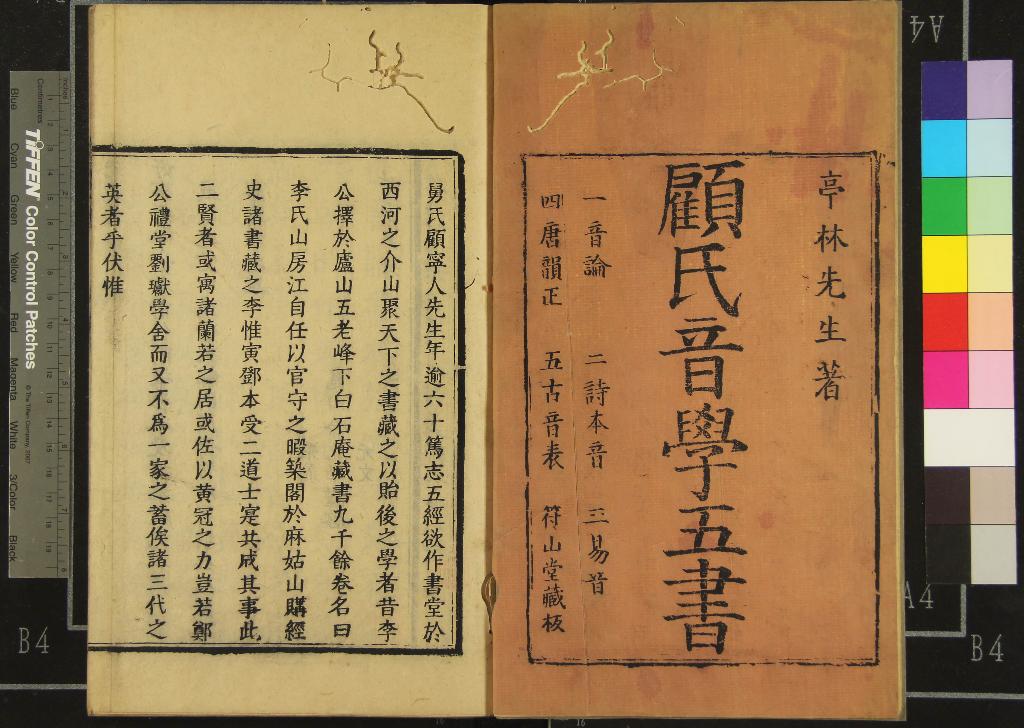 亭林先生著
顧氏音學五書
一音論 二詩本音 三易音
四唐韻正 五古音表 符山堂藏板
舅氏顧寧人先生年逾六十篤志五經欲作書堂於
西河之介山聚天下之書藏之以貽後之學者昔李
公擇於廬山五老峰下白石庵藏書九千餘卷名曰
李氏山房江自任以官守之暇築閣於麻姑山購經
史諸書藏之李惟寅鄧本受二道士寔共成其事此
二賢者或寓諸蘭若之居或佐以黄冠之力豈若鄭
公禮堂劉瓛學舍而又不爲一家之蓄俟諸三代之
英者乎伏惟
inches
Centimetres
TIFFEN Color Control Patches
© The Tiffen Company, 2007
Blue Cyan Green Yellow Red Magenta White 3/Color Black
B4
A4
A4
B4
16